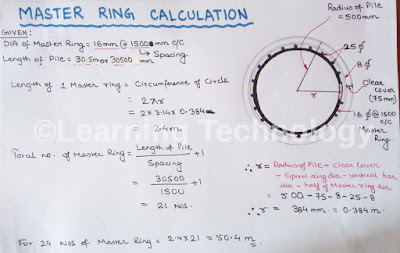 MASTER RING CALCULATION
GIVEN:
DIA of Master Ring = 16mm @ 1500 mm c/c
Spacing
Length of Pile = 30.5m or 30500 mm
Length of 1 Master ring = Circumference of Circle
= 2πr
= 2×3.14×0.384
= 2.4m
Total no. of Master Ring = Length of Pile / Spacing + 1
= 30500 / 1500 + 1
= 21 Nos.
For 24 Nos of Master Ring = 2.4×21 = 50.4 m
Radius of Pile
= 500mm
25 ϕ
8 ϕ
clear
cover
(75mm)
r
16 ϕ @ 1500
c/c
Master
Ring
∴ r = Radius of Pile - clear cover
- Spiral ring dia - vertical bar
dia - half of Master ring dia
= 500-75-8-25-8
∴ r = 384 mm = 0.384m.
©Learning Technology